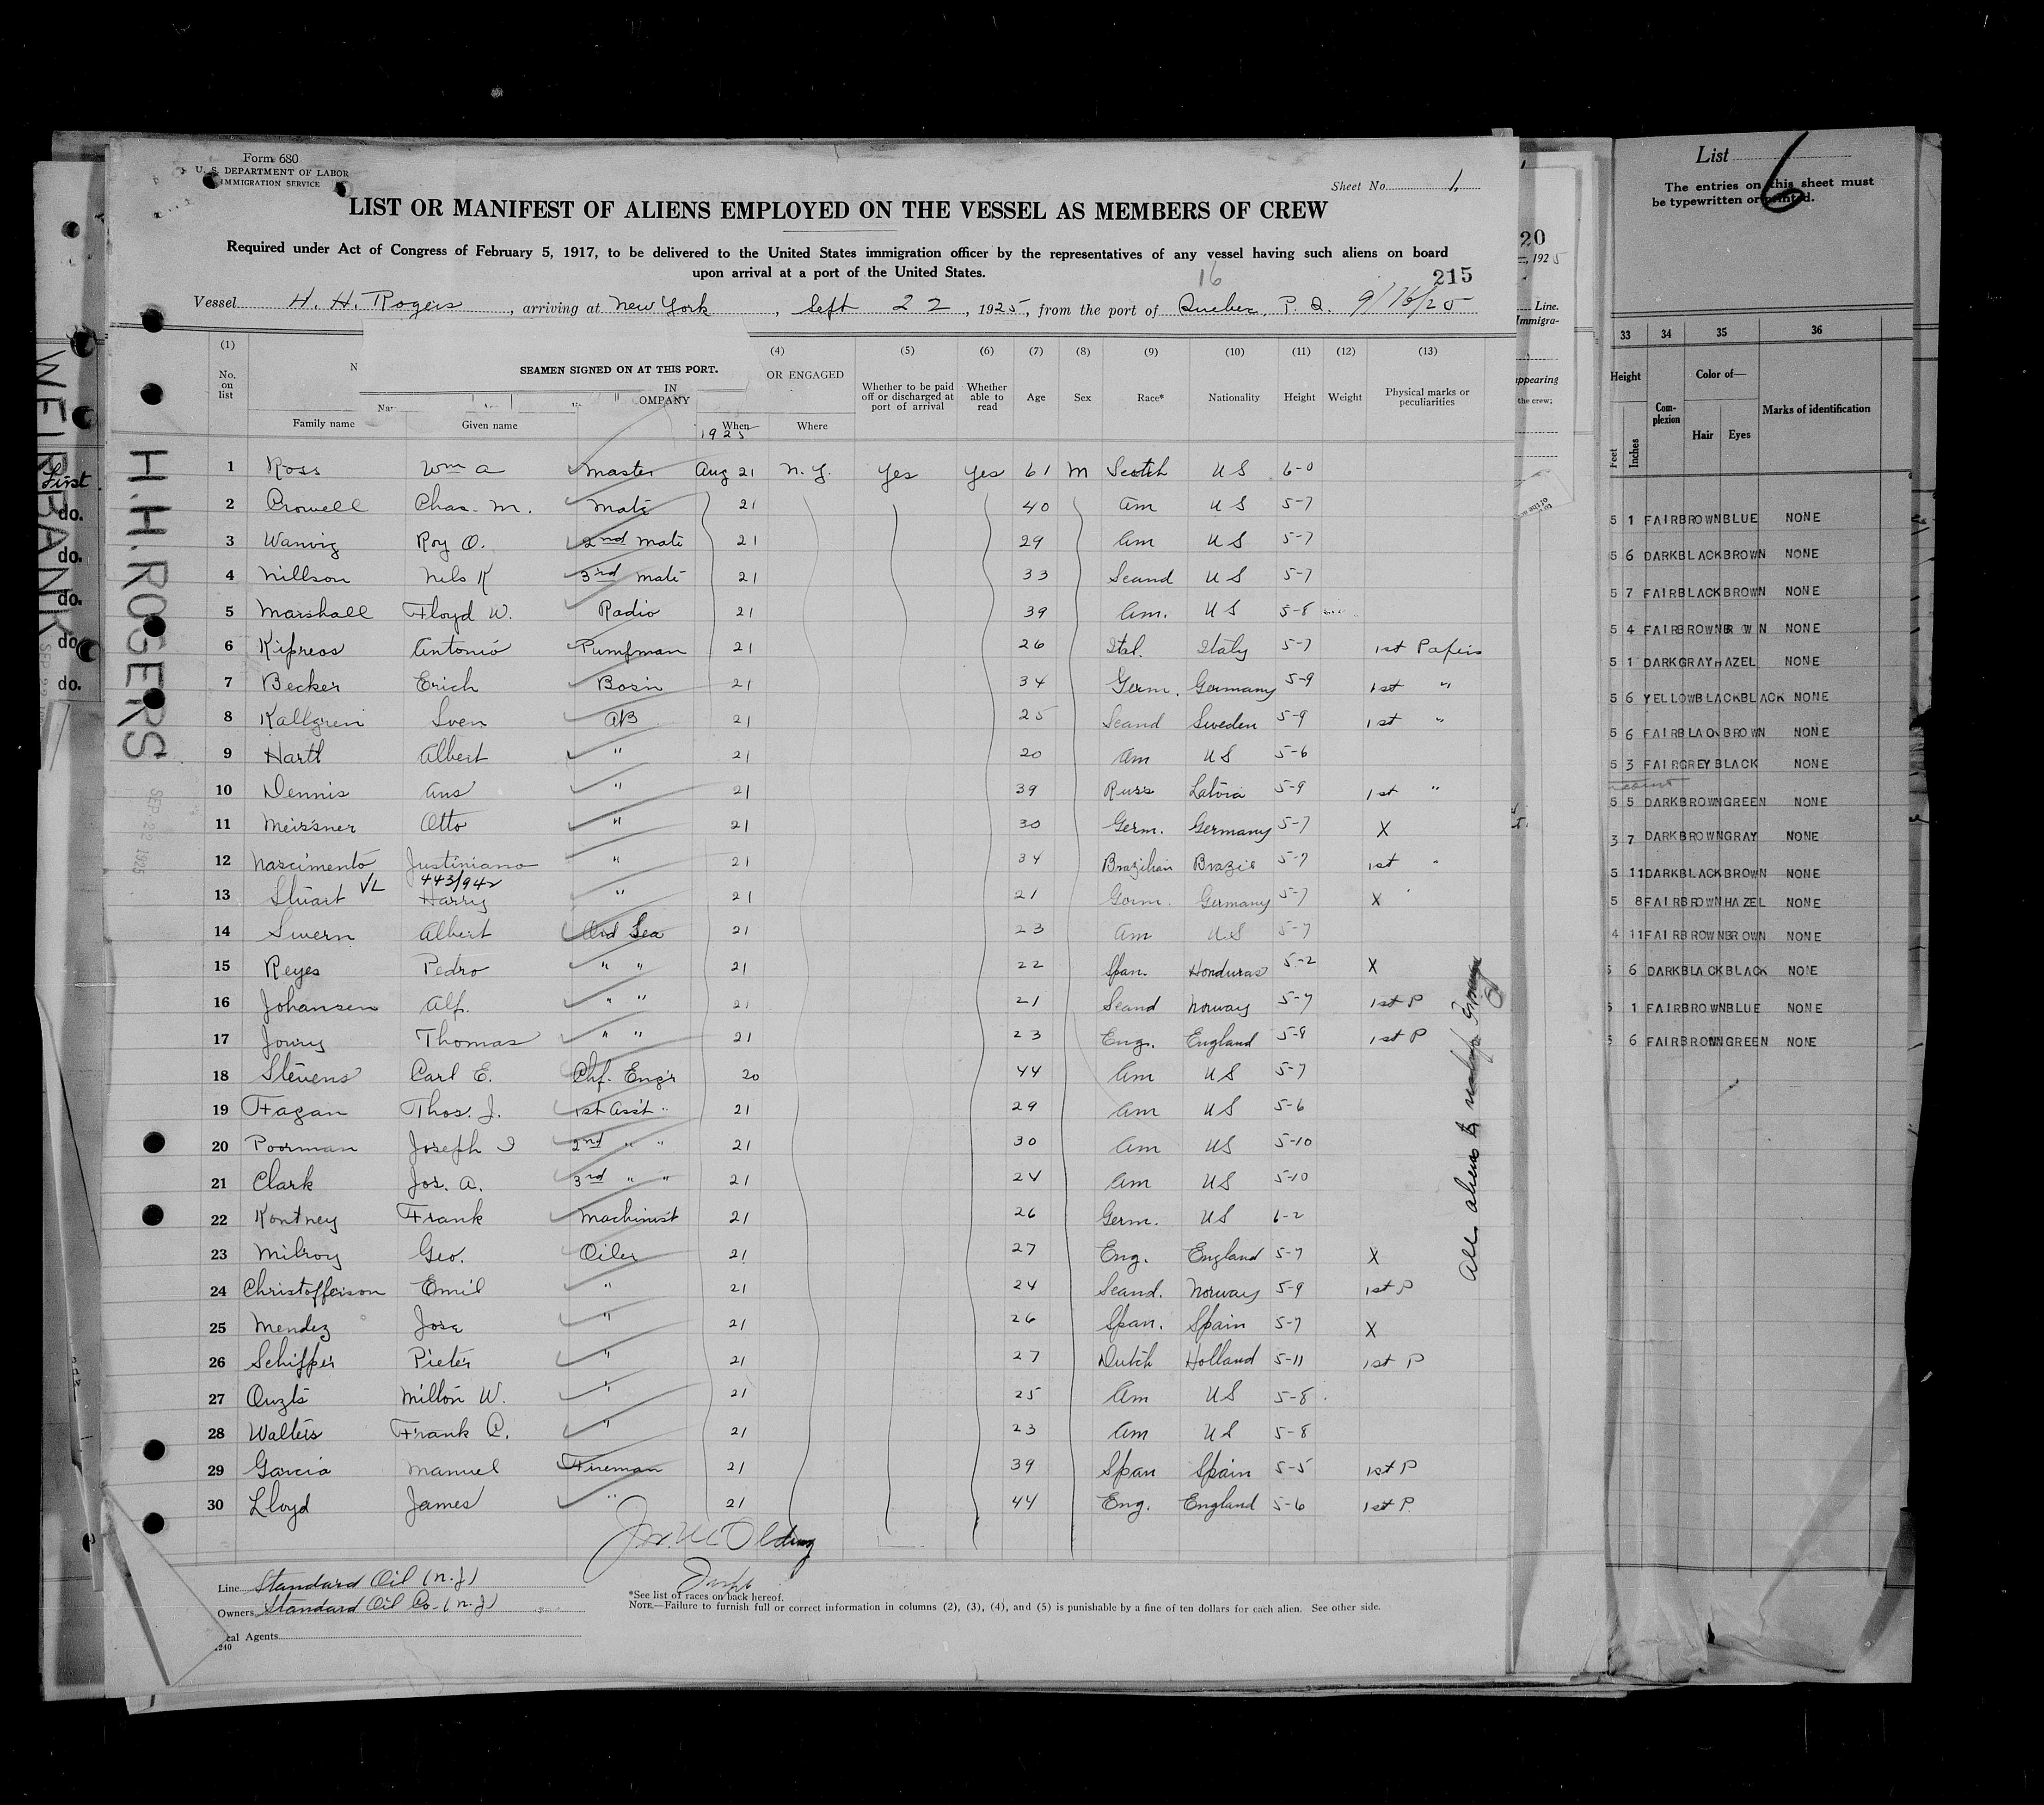 Form 680
U. S. DEPARTMENT OF LABOR
IMMIGRATION SERVICE
Sheet No. 1
LIST OR MANIFEST OF ALIENS EMPLOYED ON THE VESSEL AS MEMBERS OF CREW
Required under Act of Congress of February 5, 1917, to be delivered to the United States immigration officer by the representatives of any vessel having such aliens on board
upon arrival at a port of the United States.
16
215
Vessel H. H. Rogers, arriving at New York, Sept 22, 1925, from the port of Quebec, P. Q. 9/16/25
(1) (4) (5) (6) (7) (8) (9) (10) (11) (12) (13)
No. on list N SEAMEN SIGNED ON AT THIS PORT. IN OMPANY OR ENGAGED Whether to be paid off or discharged at port of arrival Whether able to read Age Sex Race* Nationality Height Weight Physical marks or peculiarities
Family name Given name When Where
1925
1 Ross Wm A Master Aug 21 N.Y. Yes Yes 61 M Scotch US 6-0
2 Crowell Chas. M. Mate 21 40 Am US 5-7
3 Warvig Roy O. 2nd Mate 21 29 Am US 5-7
4 Nillson Nels K 3rd Mate 21 33 Scand US 5-7
5 Marshall Floyd W. Radio 21 39 Am. US 5-8
6 Kipreos Antonio Pumpman 21 26 Ital. Italy 5-7 1st Papers
7 Becker Erich Bosin 21 34 Germ. Germany 5-9 1st "
8 Kallgren Sven AB 21 25 Scand Sweden 5-9 1st "
9 Hartl Albert " 21 20 Am US 5-6
10 Dennis Ans " 21 39 Russ Latvia 5-9 1st "
11 Meissner Otto " 21 30 Germ. Germany 5-7 X
12 Nascimento Justiniano " 21 34 Brazilian Brazil 5-7 1st "
443/942
13 Stuart VL Harry " 21 21 Germ. Germany 5-7 X
14 Swern Albert Ord Sea 21 23 Am U.S 5-7
15 Reyes Pedro " " 21 22 Span. Honduras 5-2 X
16 Johansen Alf. " " 21 21 Scand Norway 5-7 1st P
17 Thomas " " 21 23 Eng. England 5-8 1st P
18 Stevens Carl E. Chf. Eng'r 20 44 Am US 5-7
19 Fagan Thos. J. 1st Ass't " 21 29 Am US 5-6
20 Poorman Joseph I 2nd " " 21 30 Am US 5-10
21 Clark Jos. A. 3rd " " 21 24 Am US 5-10
22 Kontney Frank Machinist 21 26 Germ. US 6-2
23 Milroy Geo. Oiler 21 27 Eng. England 5-7 X
24 Christofferson Emil " 21 24 Scand. Norway 5-9 1st P
25 Mendez Jose " 21 26 Span. Spain 5-7 X
26 Schiffer Pieter " 21 27 Dutch Holland 5-11 1st P
27 Ouzts Milton W. " 21 25 Am US 5-8
28 Walters Frank C. " 21 23 Am US 5-8
29 Garcia Manuel Fireman 21 39 Span Spain 5-5 1st P
30 Lloyd James " 21 44 Eng. England 5-6 1st P.
All aliens
Line Standard Oil (N.J)
Owners Standard Oil Co. (N.J)
cal Agents
1240
*See list of races on back hereof.
NOTE.—Failure to furnish full or correct information in columns (2), (3), (4), and (5) is punishable by a fine of ten dollars for each alien. See other side.
H.H. ROGERS
SEP 22 1925
WEIRBANK
First
do.
do.
do.
do.
do.
20
, 1925
Line.
Immigra-
appearing
the crew;
List 6
The entries on this sheet must
be typewritten or printed.
33 34 35 36
Height Complexion Color of— Marks of identification
Feet Inches Hair Eyes
5 1 FAIR BROWN BLUE NONE
5 6 DARK BLACK BROWN NONE
5 7 FAIR BLACK BROWN NONE
5 4 FAIR BROWN BR W N NONE
5 1 DARK GRAY HAZEL NONE
5 6 YELLOW BLACK BLACK NONE
5 6 FAIR BLACK BROWN NONE
5 3 FAIR GREY BLACK NONE
5 5 DARK BROWN GREEN NONE
3 7 DARK BROWN GRAY NONE
5 11 DARK BLACK BROWN NONE
5 8 FAIR BROWN HAZEL NONE
4 11 FAIR BROWN BROWN NONE
5 6 DARK BLACK BLACK NONE
5 1 FAIR BROWN BLUE NONE
5 6 FAIR BROWN GREEN NONE